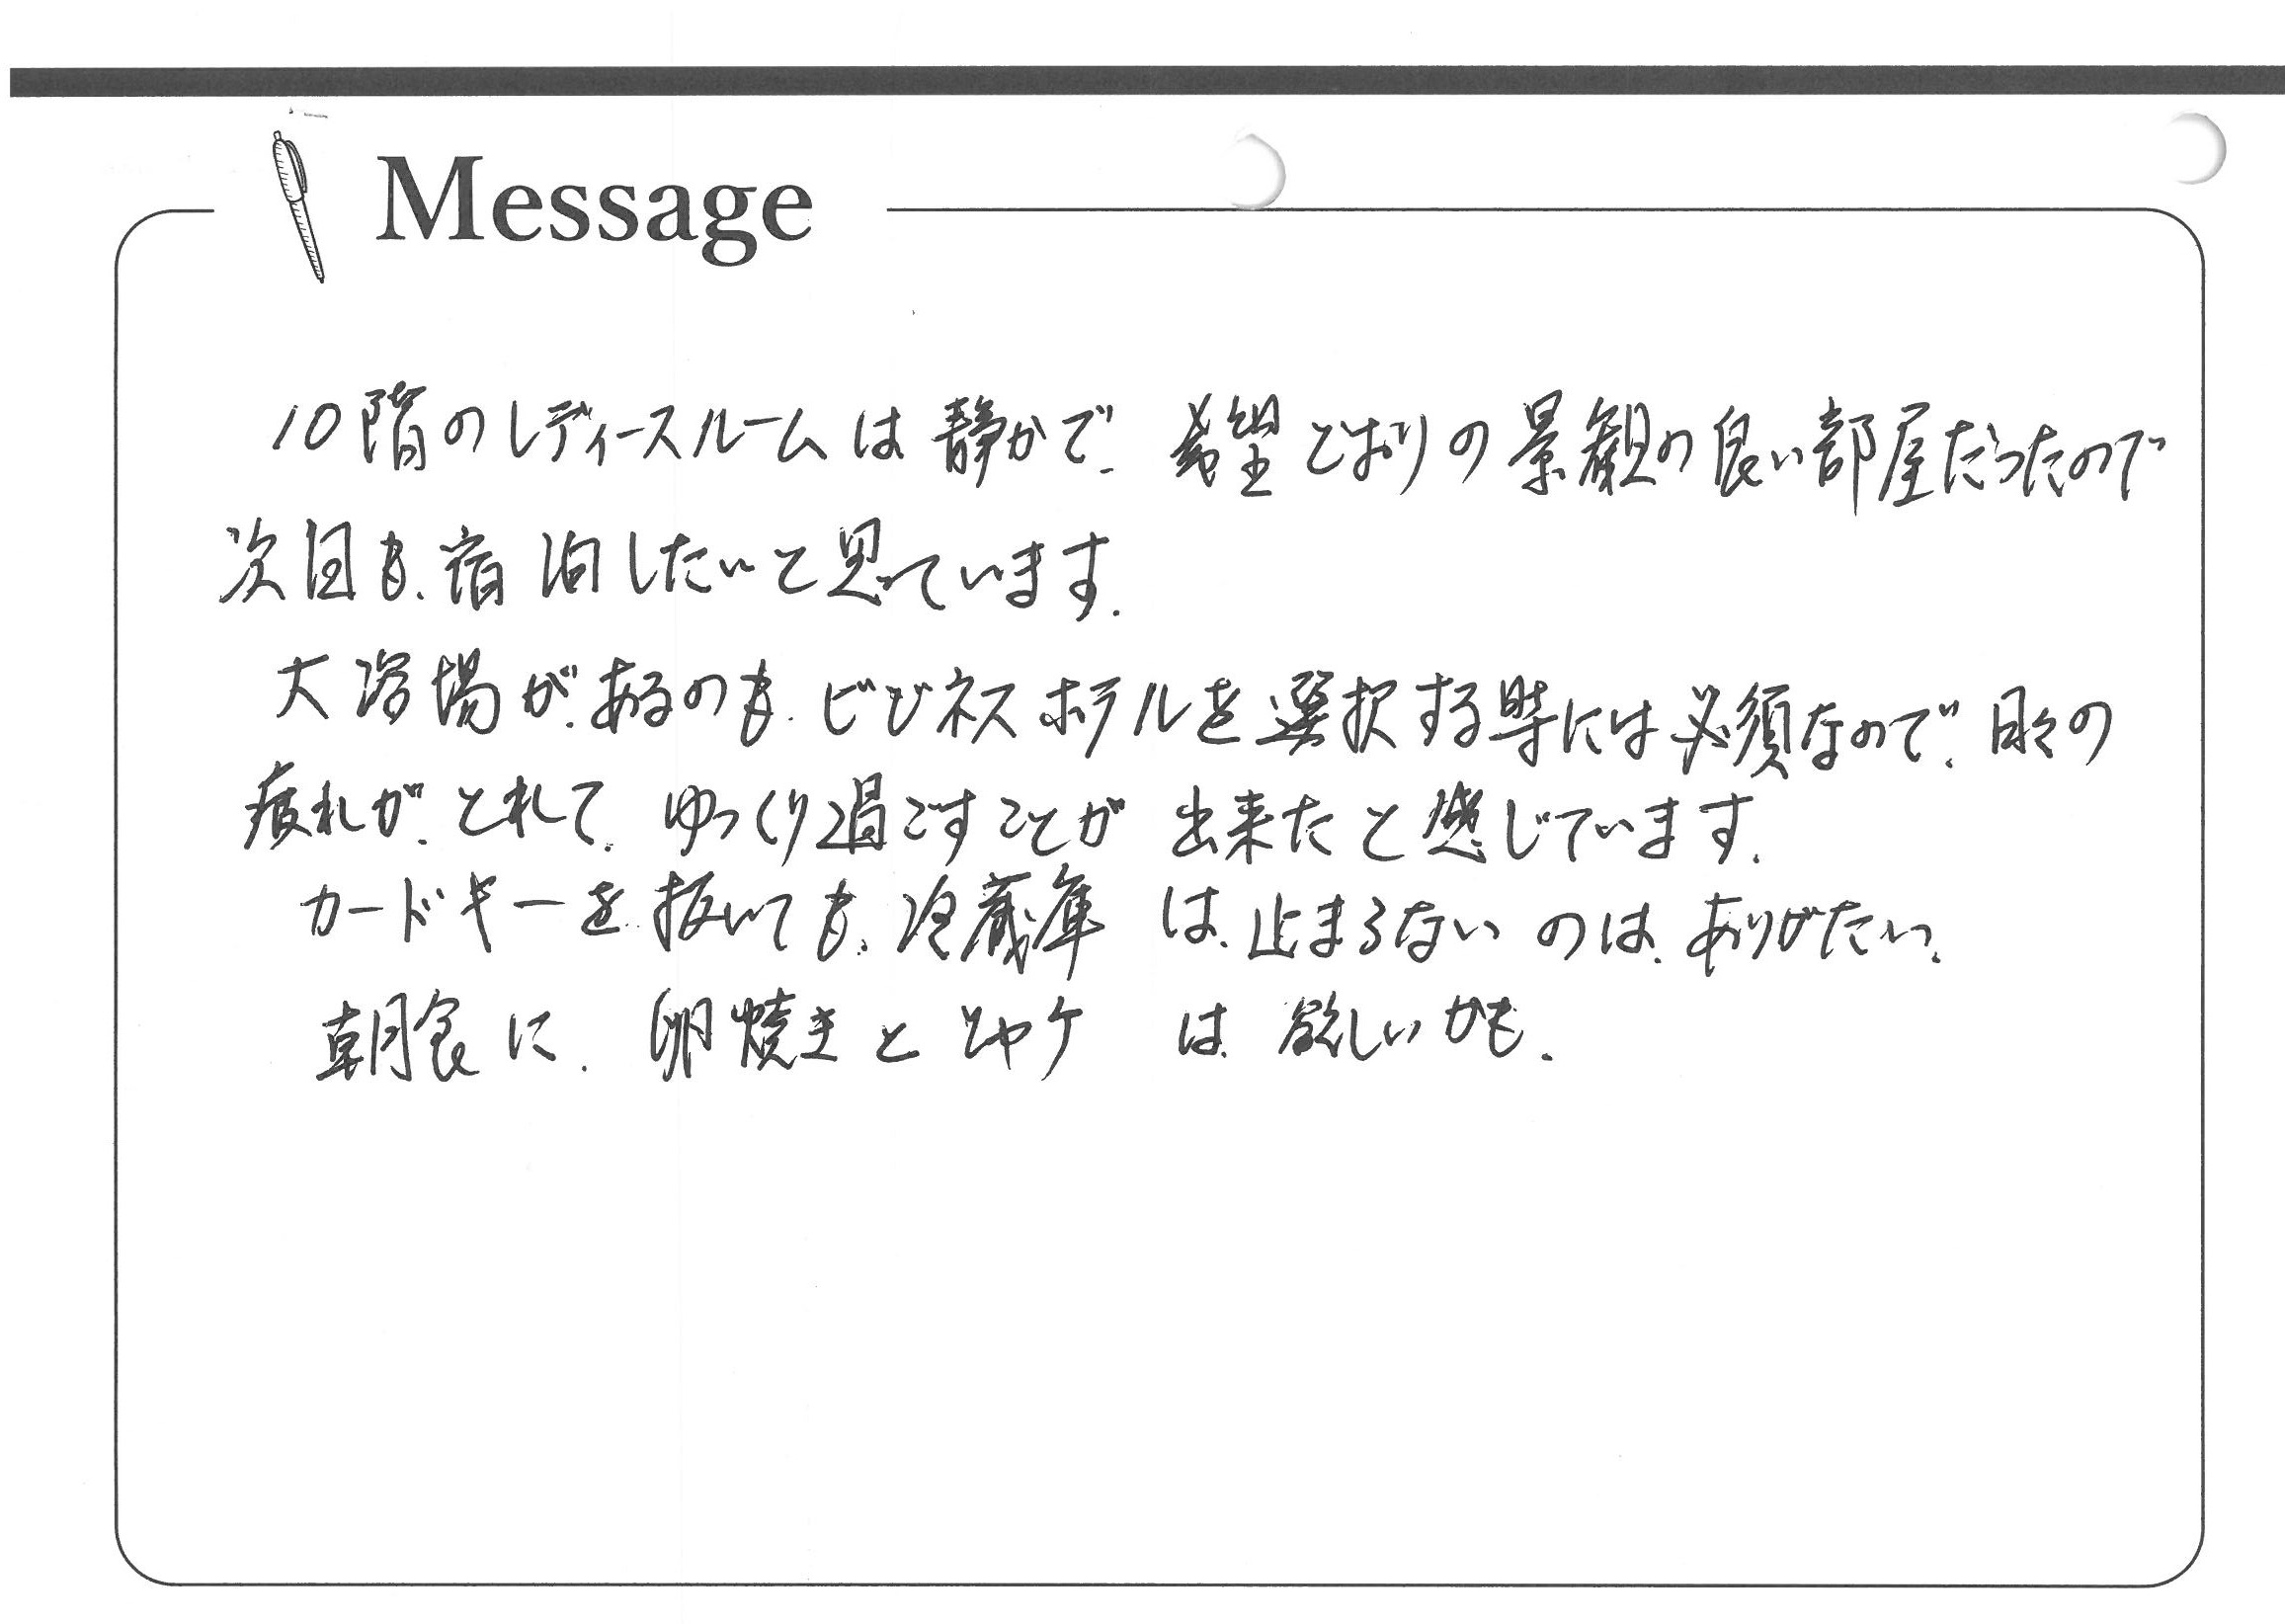 Message
10階のレディースルームは静かで、希望どおりの景観の良い部屋だったので
次回も、宿泊したいと思っています。
大浴場が、あるのも、ビジネスホテルを選択する時には必須なので、日々の
疲れが、とれて、ゆっくり過ごすことが出来たと感じています。
カードキーを抜いても、冷蔵庫は、止まらないのは、ありがたい。
朝食に、卵焼きとシャケは、欲しいかも。